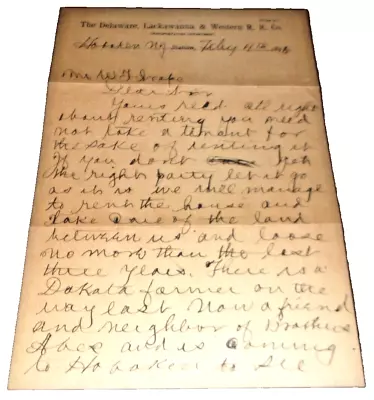 The Delaware, Lackawanna & Western R. R. Co.
Hoboken NJ Feby 4th
Mr W G
Dear Sir
Yours recd all right
about renting you need
not take a tenant for
the sake of renting it
If you dont get
the right party let it go
as it is we will manage
to rent the house and
take care of the land
between us and loose
no more than the last
three years. There is a
Dakota farmer on the
way east now a friend
and neighbor of Brother
Abes and is coming
to Hoboken to see